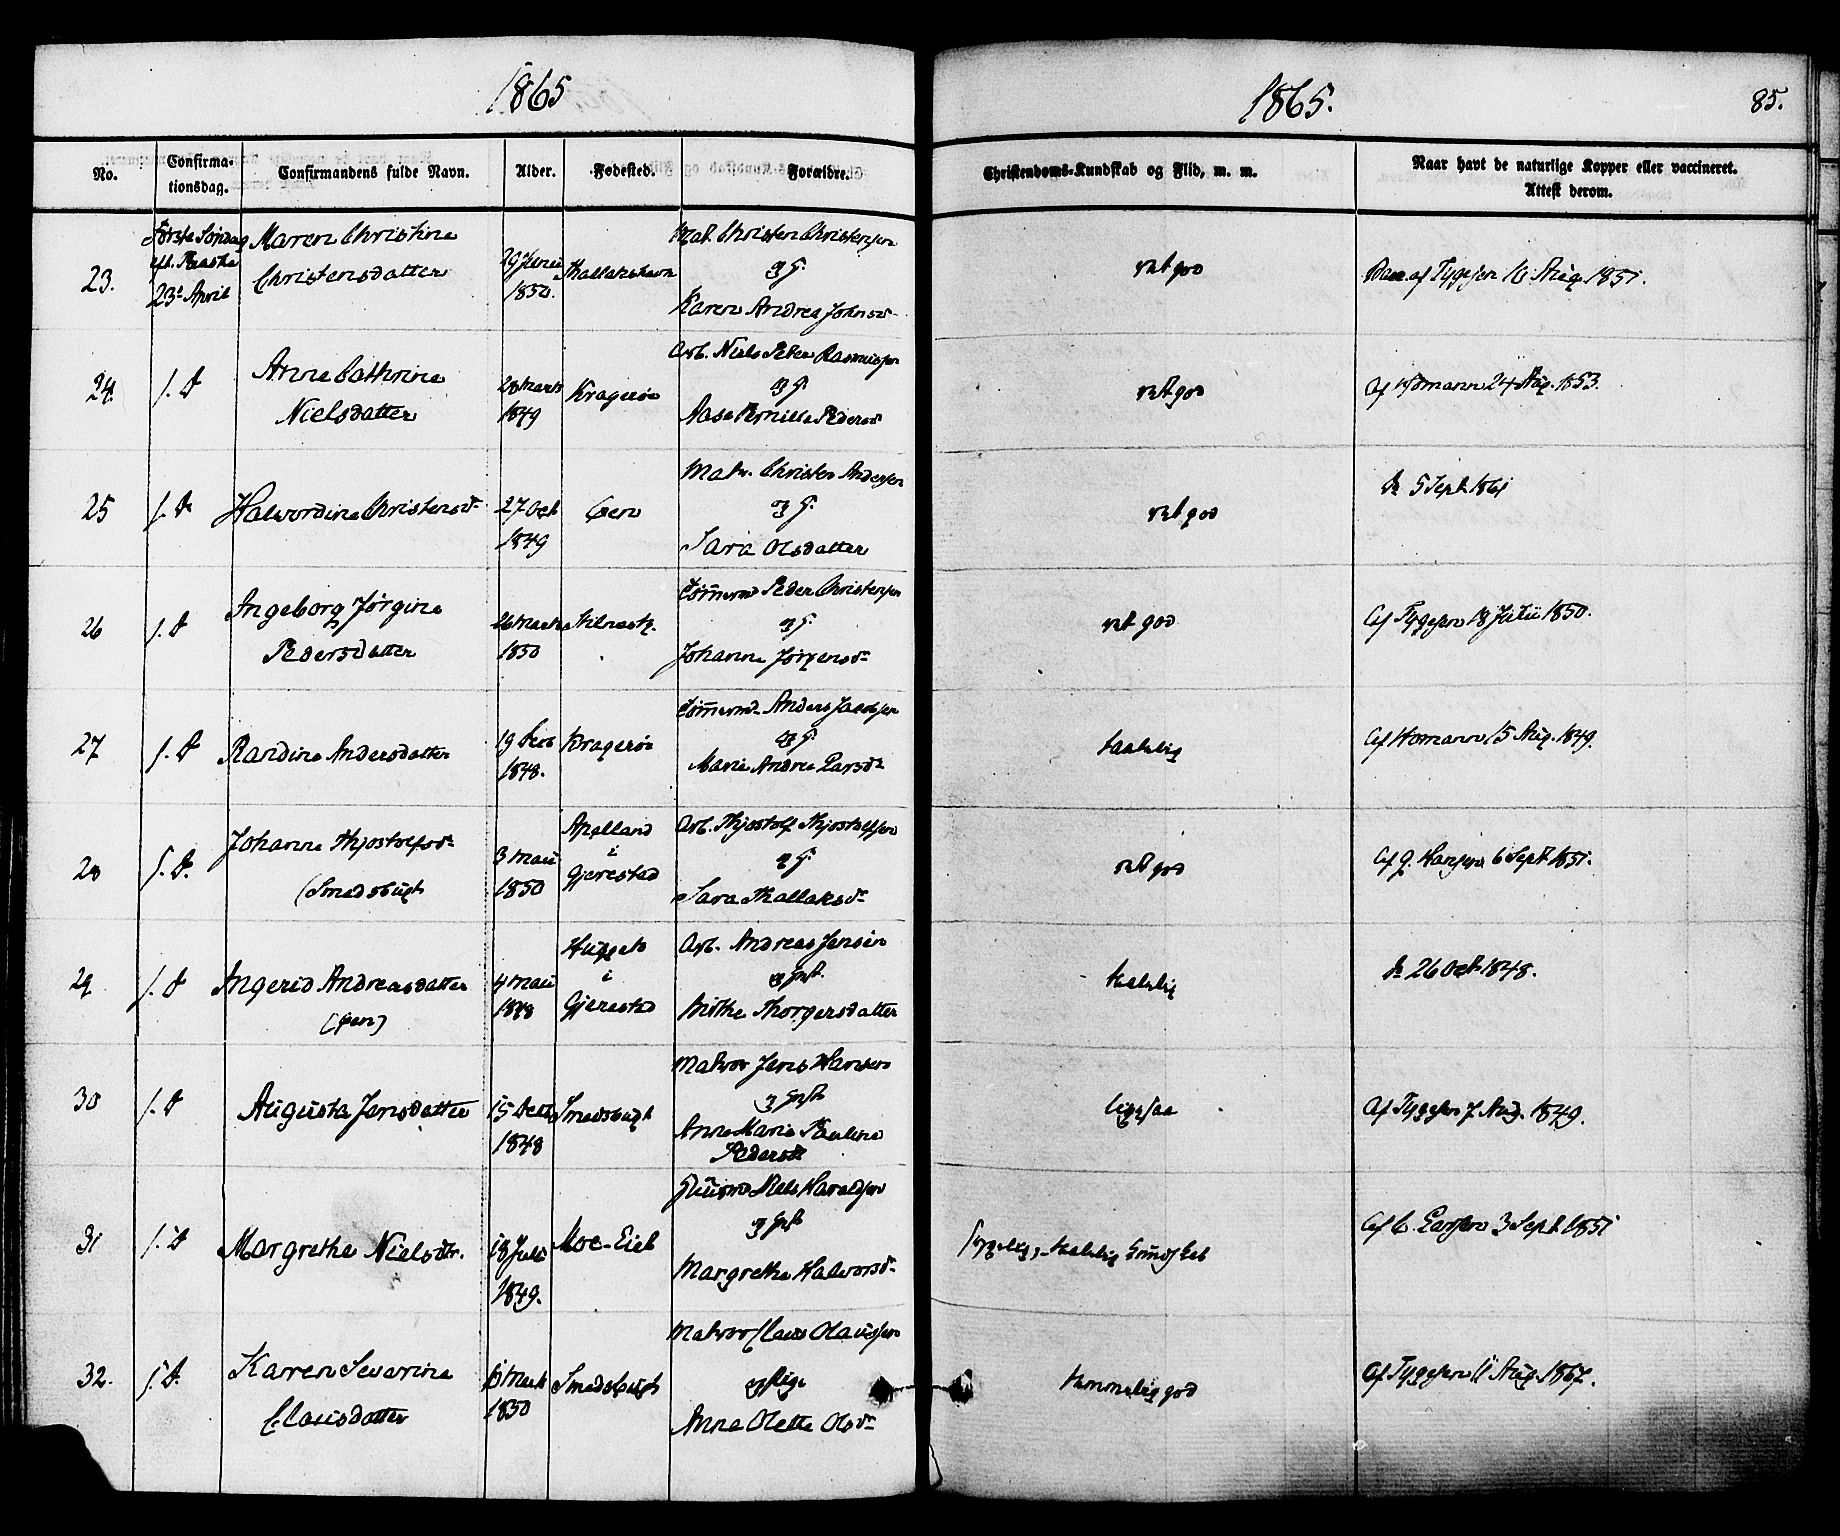 1865
1865.
85.
No.
Confirma-
tionsdag.
Confirmandens fulde Navn.
Alder.
Fødested.
Forældre.
Christendoms-Kundskab og Flid, m. m.
Naar havt de naturlige Kopper eller vaccineret.
Attest derom.
23.
Første Søndag
eft. Paaske
23d April
Maren Christine
Christensdatter
29 Juni
1850.
Mat. Christen Christensen
og H.
Karen Andrea Johnsd
ret god
Vac. af Tygesen 16 Aug. 1851.
24.
s. D
Anne Cathrine
Nielsdatter
28 Marts
1849
Kragerøe
Arb. Niels Peter Rasmussen
og H.
Aase Pernille Pedersd
ret god
Af Homann 24 Aug. 1853.
25
s. D
Halvordine Christensdr
27 Oct
1849
Øen
Matr. Christen Andersen
og H.
Sara Olsdatter
ret god
5 Sept 1861
26
s. D
Ingeborg Jørgine
Pedersdatter
26 Marts
1850
Tømermd Peder Christensen
og H.
Johanne Jørgensdr
ret god
Af Tygesen 18 Juli 1850.
27
s. D
Randine Andersdatter
19
1848.
Kragerøe
Tømermd Anders Jacobsen
og H.
Marie Andrea Larsdr
taalelig
Af Homann 15 Aug. 1849.
28
s. D.
Johanne Thjostolfsdr
(Smedsbugt
3 Mai
1850
Apelland
i
Gjerestad
Arb. Thjostolf Thjostolfsen
og H.
Sara Thallaksdr
ret god
Af J. Hansen 6 Sept 1851.
29
s. D
Ingerid Andreasdatter
(Øen)
4 Mai
1848
i
Gjerestad
Arb. Andreas Jensen
og Hust.
Thorgersdatter
taalelig
26 Oct 1848.
30
s. D
Augusta Jensdatter
15
1848
Smedsbugt
Matros Jens Hansen
og Hust
Anne Marie Pauline
Pedersdr
ligesaa
Af Tygesen 7 Aug. 1849.
31
s. D
Margrethe Nielsdtr.
18 Juli
1849.
Moe-Eiet
Huusmd Niels Haraldsen
og Hust
Margrethe Halvorsdr
taalelig Kundskab
Af C. Larsen 3 Sept 1851
32.
s. D.
Karen Severine
Clausdatter
Marts
1850
Smedsbugt
Matros Claus Olaussen
og Pige
Anne Olette Olsdr
temmelig god
Af Tygesen 11 Aug. 1867.